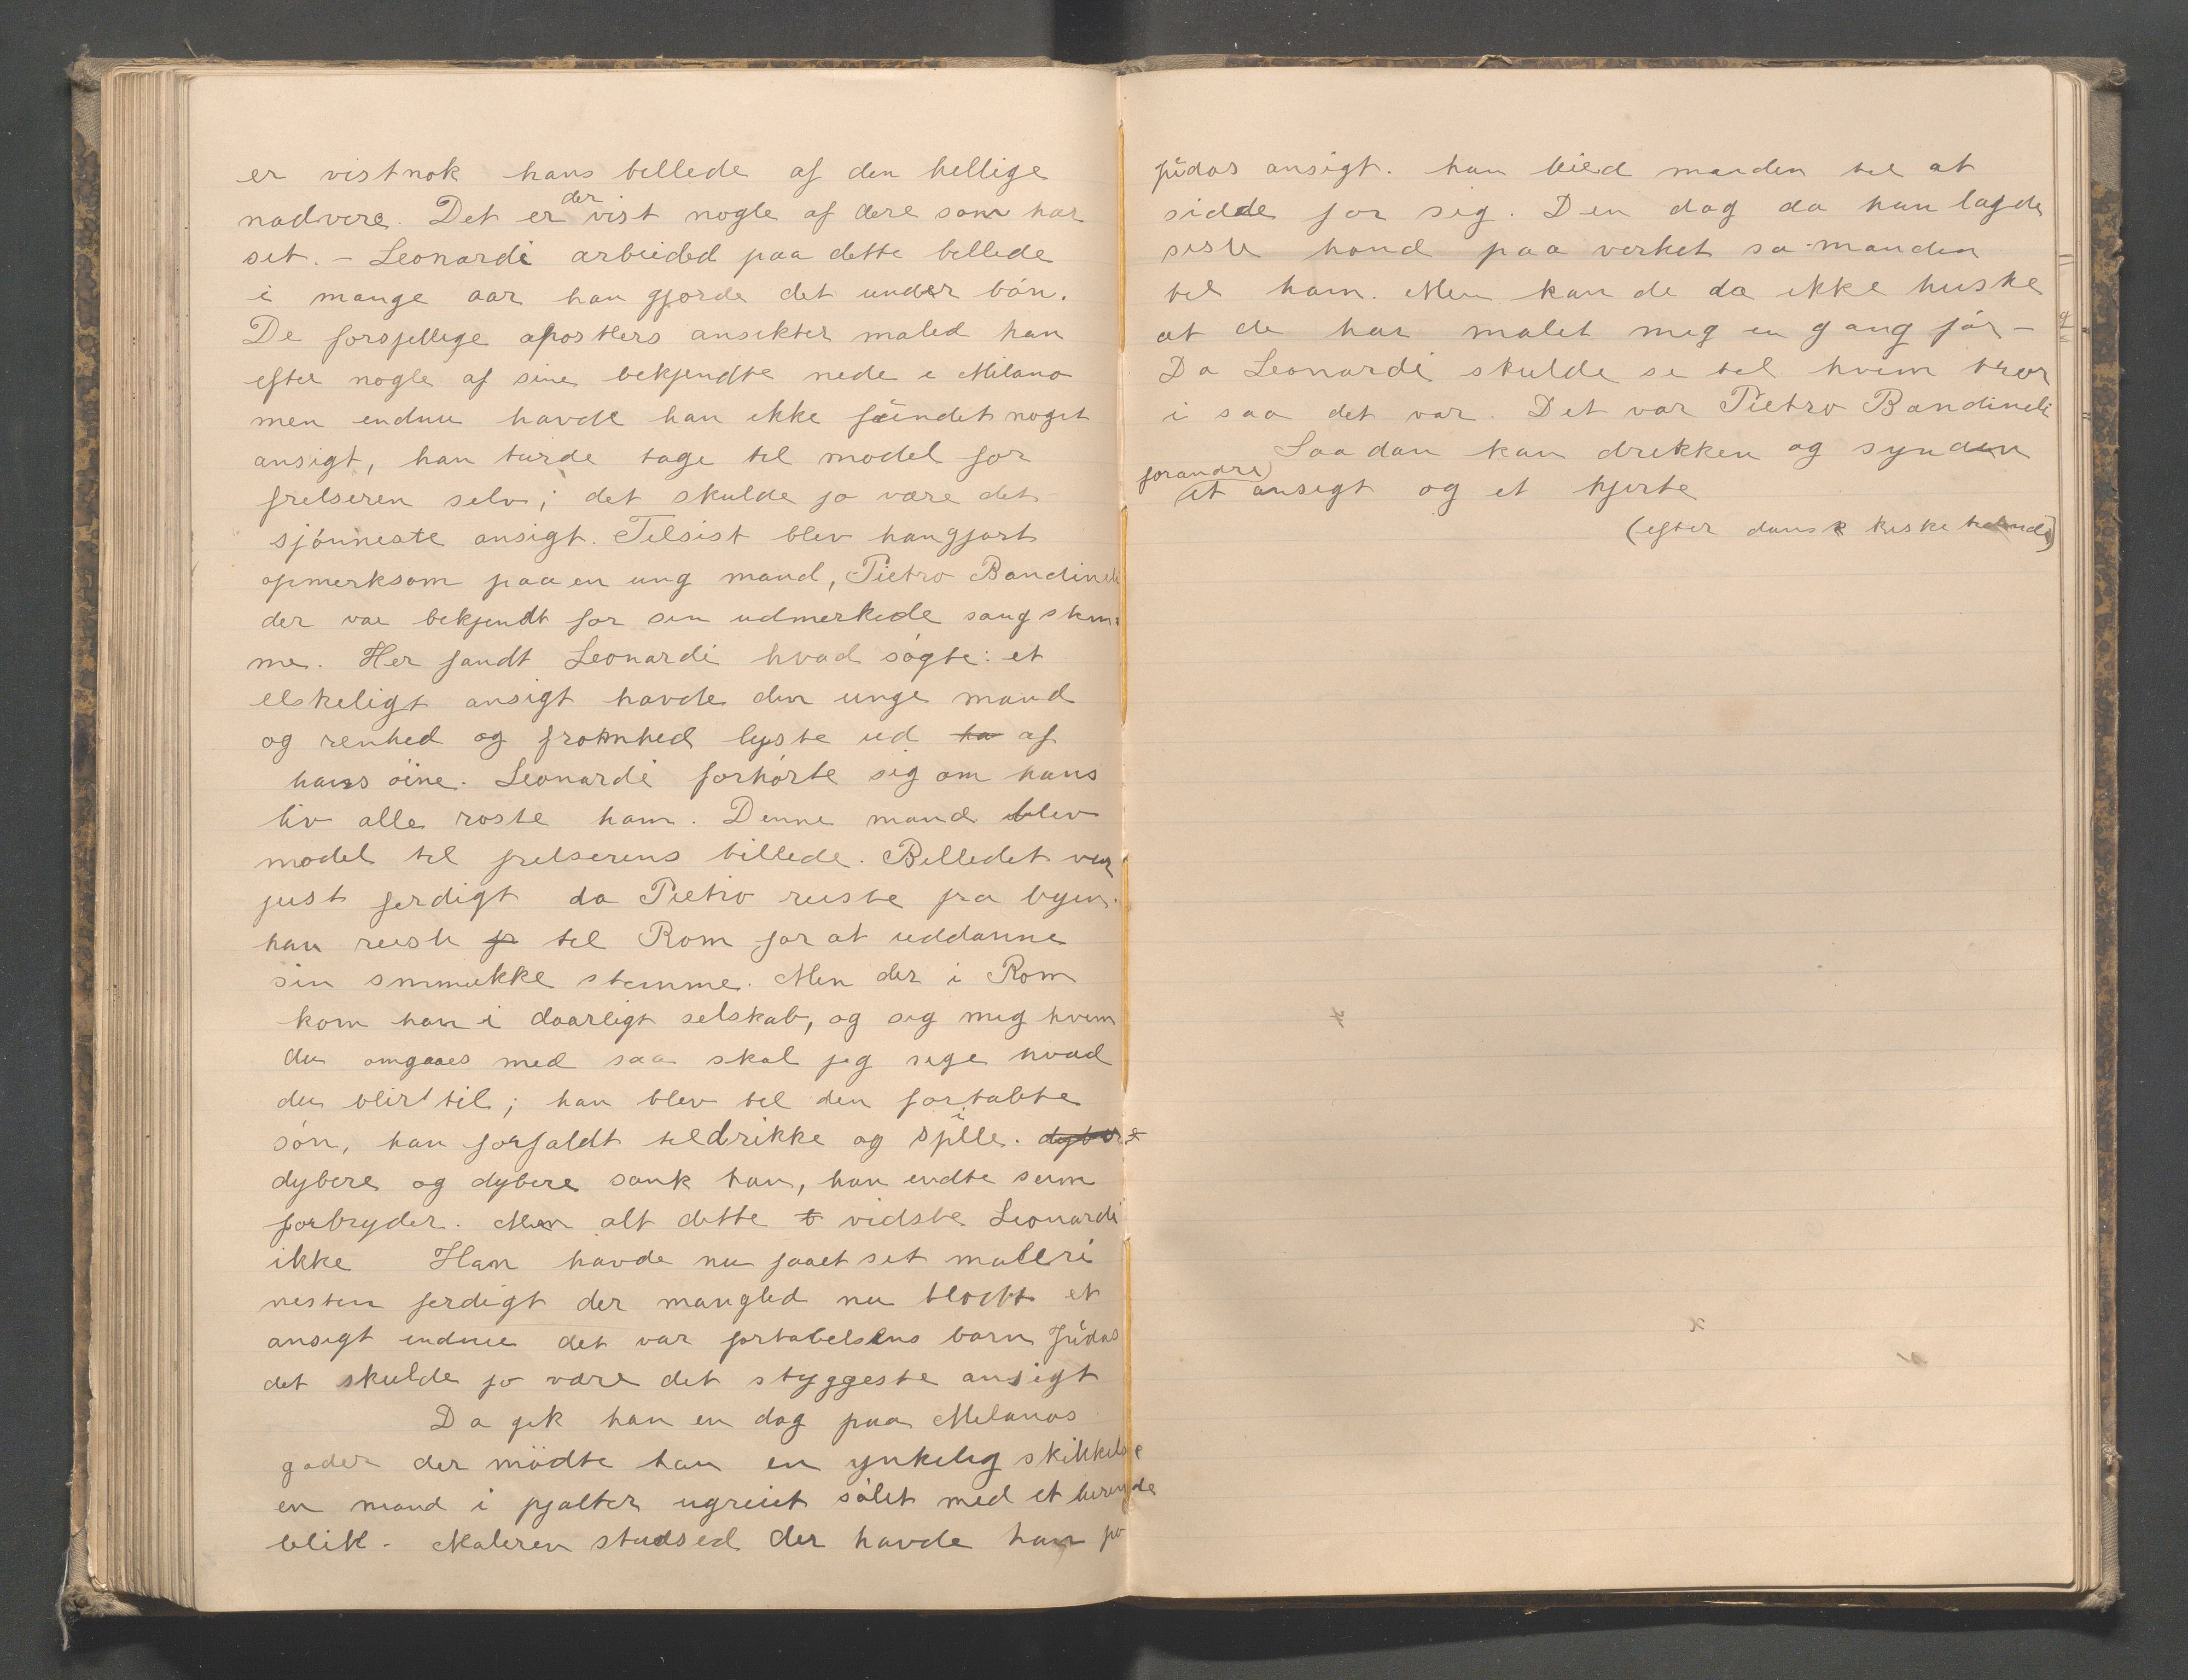 er vistnok hans billede af den hellige
nadvere. Det er der vist nogle af dere som har
set. – Leonardi arbeided paa dette billede
i mange aar han gjorde det under bön.
De forsjellige apostlers ansikter maled han
efter nogle af sine bekjendte nede i Milano
men endnu havde han ikke fundet noget
ansigt, han turde tage til model for
frelseren selv; det skulde jo være det
sjönneste ansigt. Tilsist blev han gjort
opmerksom paa en ung mand, Pietro Bandineli
der var bekjendt for sin udmerkede sangstem=
me. Her fandt Leonardi hvad sögte: et
elskeligt ansigt havde den unge mand
og renhed og fromhed lyste ud ha af
hans öine. Leonardi forhörte sig om hans
liv alle roste ham. Denne mand blev
model til frelserens billede. Billedet var
just ferdigt da Pietro reiste fra byen.
han reiste fr til Rom for at uddanne
sin smmukke stemme. Men der i Rom
kom han i daarligt selskab, og sig mig hvem
du omgaaes med saa skal jeg sige hvad
du blir til; han blev til den fortabte
sön, han forfaldt til drikke og spille. dybere
dybere og dybere sank han, han endte som
forbryder. Men alt dette t vidste Leonardi
ikke Han havde nu faaet set maleri
nesten ferdigt der mangled nu blodt et
ansigt endnu det var fortabelsens barn Judas
det skulde jo være det styggeste ansigt
Da gik han en dag paa Milanos
gader der mödte han en ynkelig skikkelse
en mand i pjalter ugreiet sölet med et
blik. Maleren studsed der havde han jo
Judas ansigt. han bied manden til at
sidde for sig. Den dag da han lagde
siste hand paa verket sa manden
til ham. Men kan de da ikke huske
at de har malet meg en gang för –
Da Leonardi skulde se til hvem tror
i saa det var. Det var Pietro Bandineli
Saadan kan drikken og synden
forandre
et ansigt og et hjerte
(efter dansk